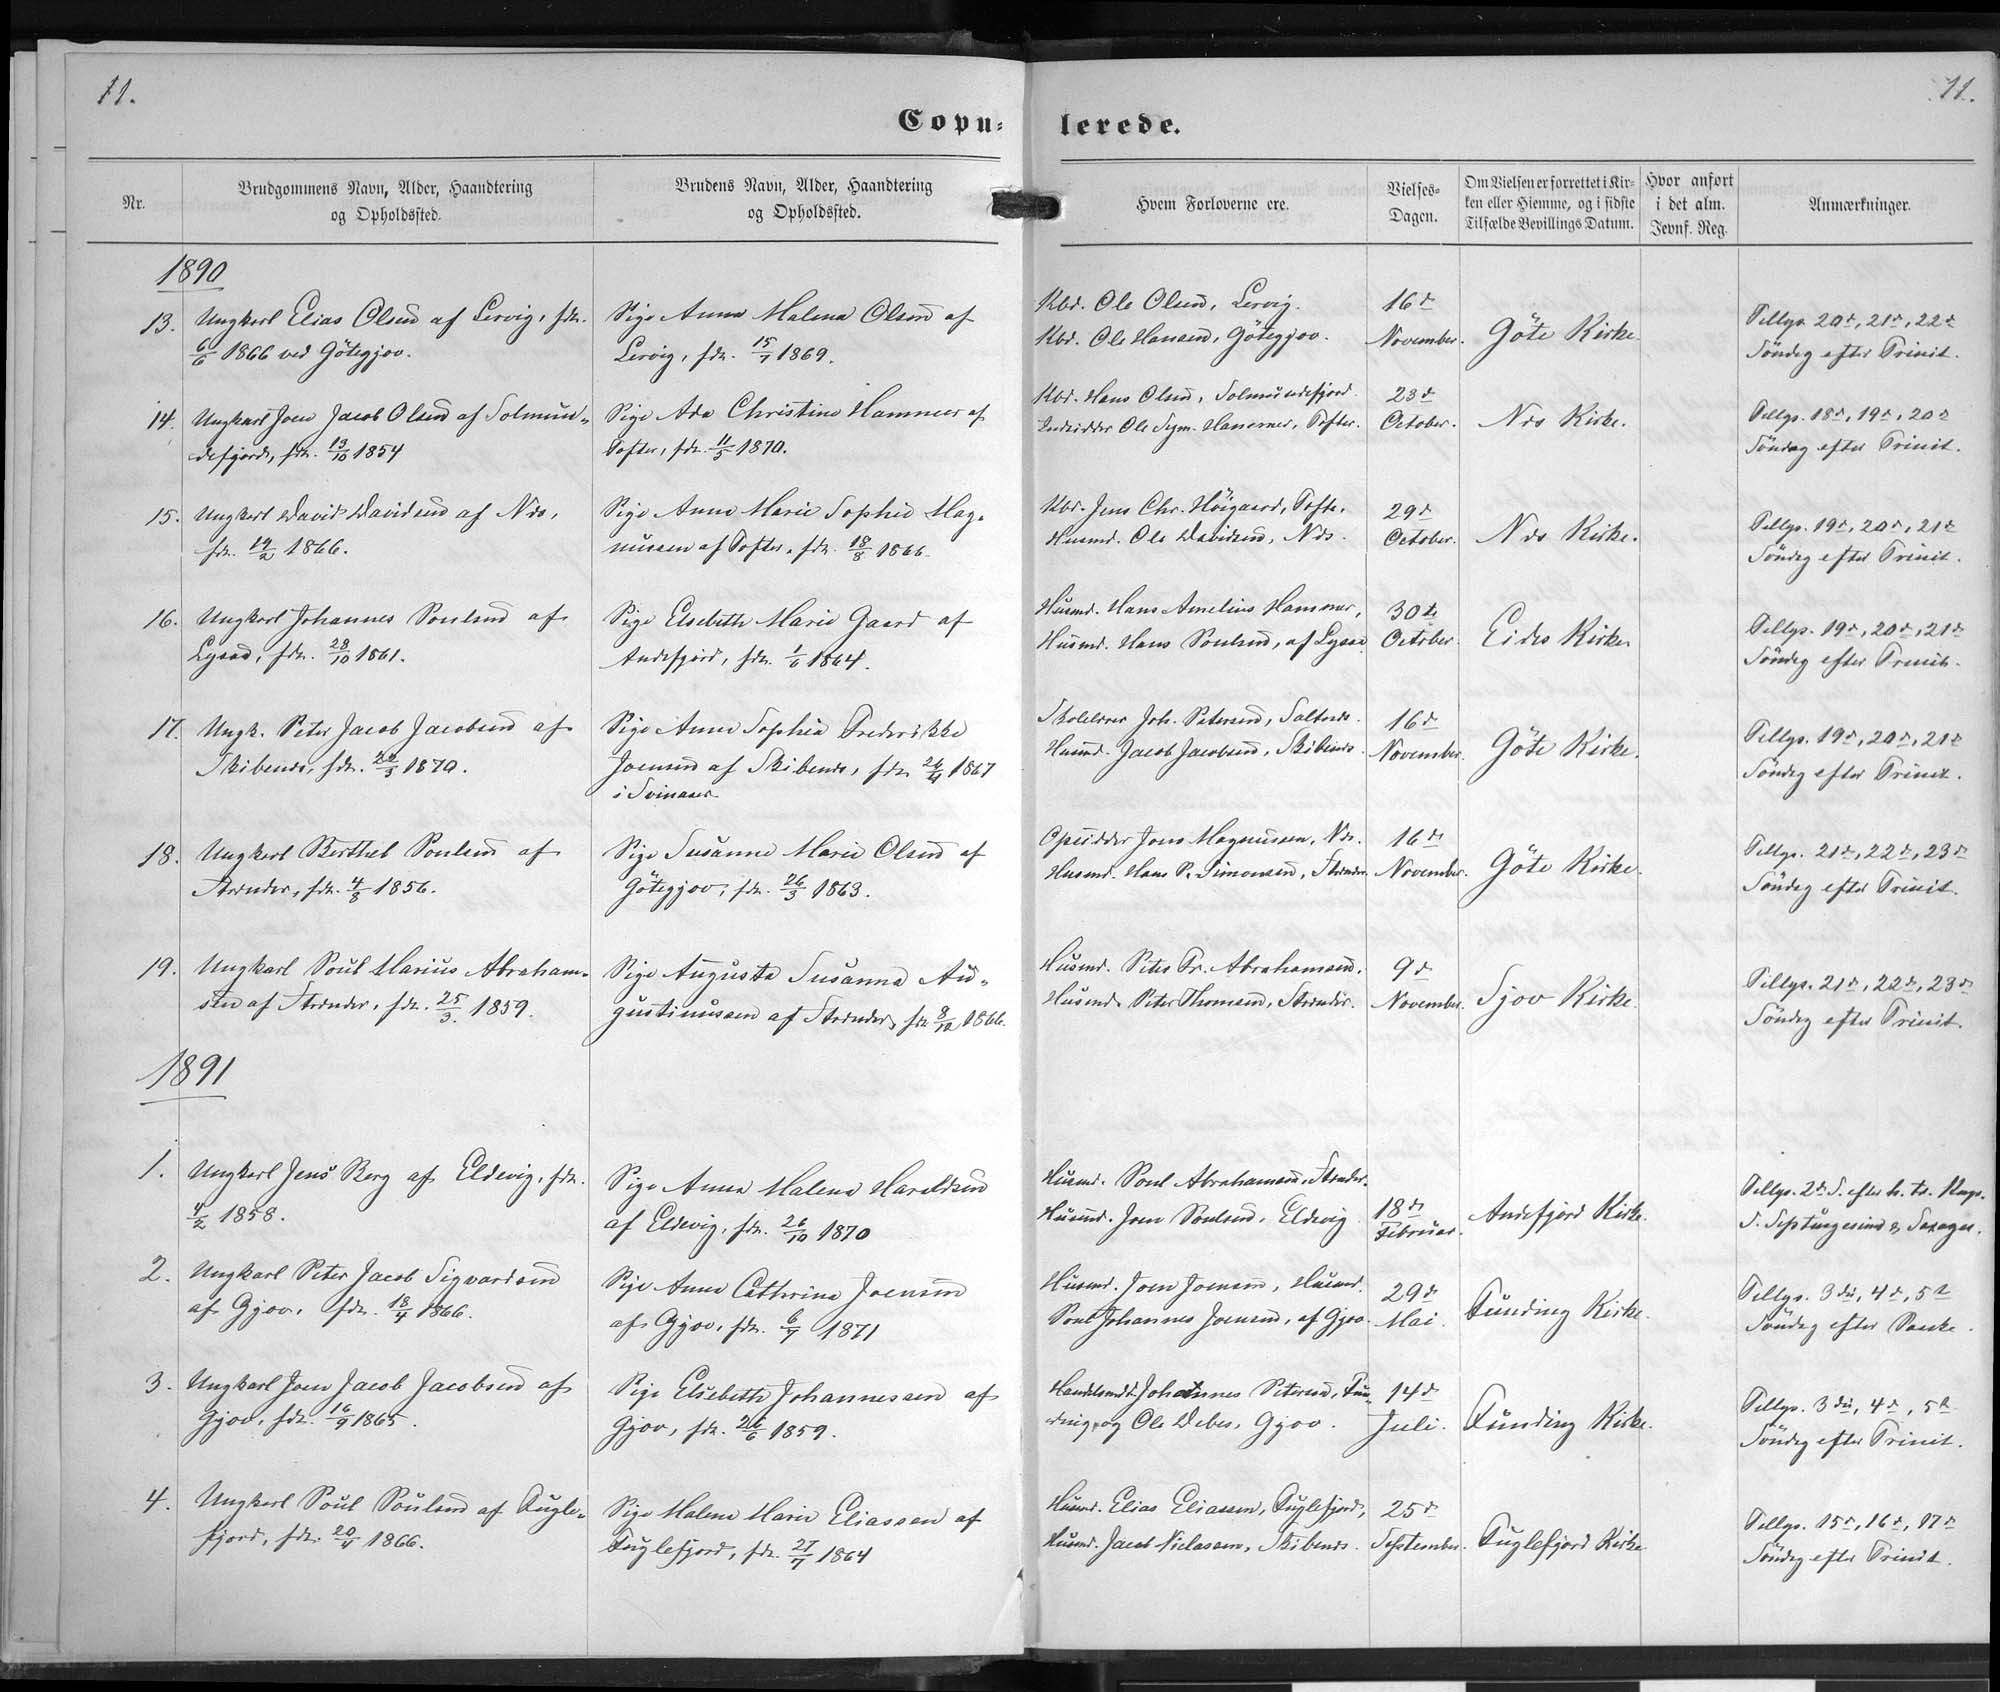 11.
11.
Copu-
lerede.
Nr.
Brudgommens Navn, Alder, Haandtering
og Opholdssted.
Brudens Navn, Alder, Haandtering
og Opholdssted.
Hvem Forloverne ere.
Vielses-
Dagen.
Om Vielsen er forrettet i Kir-
ken eller Hiemme, og i sidste
Tilfælde Bevillings Datum.
Hvor anført
i det alm.
Jevnf. Reg.
Anmærkninger.
1890
13. Ungkarl Elias Olsen af Lervig, fdt.
6/6 1866 ved Götegjov.
Pige Anna Malena Olsen af
Lervig, fdt. 15/7 1869.
Kbd. Ole Olsen, Lervig.
Kbd. Ole Hansen, Götegjov.
16de
November.
Göte Kirke.
Tillys. 20de, 21de, 22de
Söndag efter Trinit.
14. Ungkarl Joen Jacob Olsen af Solmun-
defjord, fdt. 13/10 1854
Pige Ada Christine Hammer af
Tofter, fdt. 11/5 1870.
Kbd. Hans Olsen, Solmundefjord
Ole Sym. Hammer, Tofter.
23de
October.
Nes Kirke.
Tillys. 18de, 19de, 20de
Söndag efter Trinit.
15. Ungkarl David Davidsen af Nes,
fdt. 19/2 1866.
Pige Anna Marie Sophie Mag-
nussen af Tofter, fdt. 18/8 1866.
Kbd. Jens Chr. Höigaard, Tofte.
Husmd. Ole Davidsen, Nes.
29de
October.
Nes Kirke.
Tillys. 19de, 20de, 21de
Söndag efter Trinit.
16. Ungkarl Johannes Poulsen af
Lysaa, fdt. 28/10 1861.
Pige Elsebeth Marie Gaard af
Andefjord, fdt. 1/6 1864.
Husmd. Hans Amelius Hammer,
Husmd. Hans Poulsen, af Lysaa
30te
October
Eides Kirke
Tillys. 19de, 20de, 21de
Söndag efter Trinit.
17. Ungk. Peter Jacob Jacobsen af
Skibenes, fdt. 1870.
Pige Anna Sophia Frederikke
Joensen af Skibenes, fdt. 1867
i Svinaaer
Skolelærer Joh. Petersen, Saltnes.
Husmd. Jacob Jacobsen, Skibenes.
16de
November.
Göte Kirke.
Tillys. 19de, 20de, 21de
Söndag efter Trinit.
18. Ungkarl Berthel Poulsen af
Strender, fdt. 4/8 1856.
Pige Susanne Marie Olsen af
Götegjov, fdt. 26/3 1863.
Opsidder Jens Magnussen, Nes.
Husmd. Hans P. Simonsen, Strender.
16de
November.
Göte Kirke.
Tillys. 21de, 22de, 23de
Söndag efter Trinit.
19. Ungkarl Poul Marius Abraham-
sen af Strender, fdt. 25/3. 1859.
Pige Augusta Susanna Au-
gustinussen af Strender, fdt. 8/12 1866.
Husmd. Peter Fr. Abrahamsen.
Husmd. Peter Thomsen, Strender.
9de
November.
Sjov Kirke.
Tillys. 21de, 22de, 23de
Söndag efter Trinit.
1891
1. Ungkarl Jens Berg af Eldevig, fdt.
4/2 1858.
Pige Anna Malena Haraldsen
af Eldevig, fdt. 26/10 1870
Husmd. Poul Abrahamsen, Strender.
Husmd. Joen Poulsen, Eldevig
18de
Februar.
Andefjord Kirke.
Tillys. 2den S. efter h. tr. Kng.
S. Septuagesima & Sexages.
2. Ungkarl Peter Jacob Sigvardsen
af Gjov, fdt. 18/4 1866.
Pige Anna Cathrina Joensen
af Gjov, fdt. 6/7 1871
Husmd. Joen Joensen, Husmd.
Poul Johannes Joensen, af Gjov.
29de
Mai.
Funding Kirke.
Tillys. 3die, 4de, 5te
Söndag efter Paaske.
3. Ungkarl Joen Jacob Jacobsen af
Gjov, fdt. 16/9 1865.
Pige Elsebeth Johannessen af
Gjov, fdt. 26/6 1859.
Handelsmd. Johannes Petersen, Fun-
ding, og Ole Debes, Gjov.
14de
Juli.
Funding Kirke.
Tillys. 3die, 4de, 5te
Söndag efter Trinit.
4. Ungkarl Poul Poulsen af Fugle-
fjord, fdt. 20/4 1866.
Pige Malena Marie Eliassen af
Fuglefjord, fdt. 27/7 1864
Husmd. Elias Eliassen, Fuglefjord,
Husmd. Jacob Niclassen, Skibenes.
25de
September.
Fuglefjord Kirke
Tillys. 15de, 16de, 17de
Söndag efter Trinit.